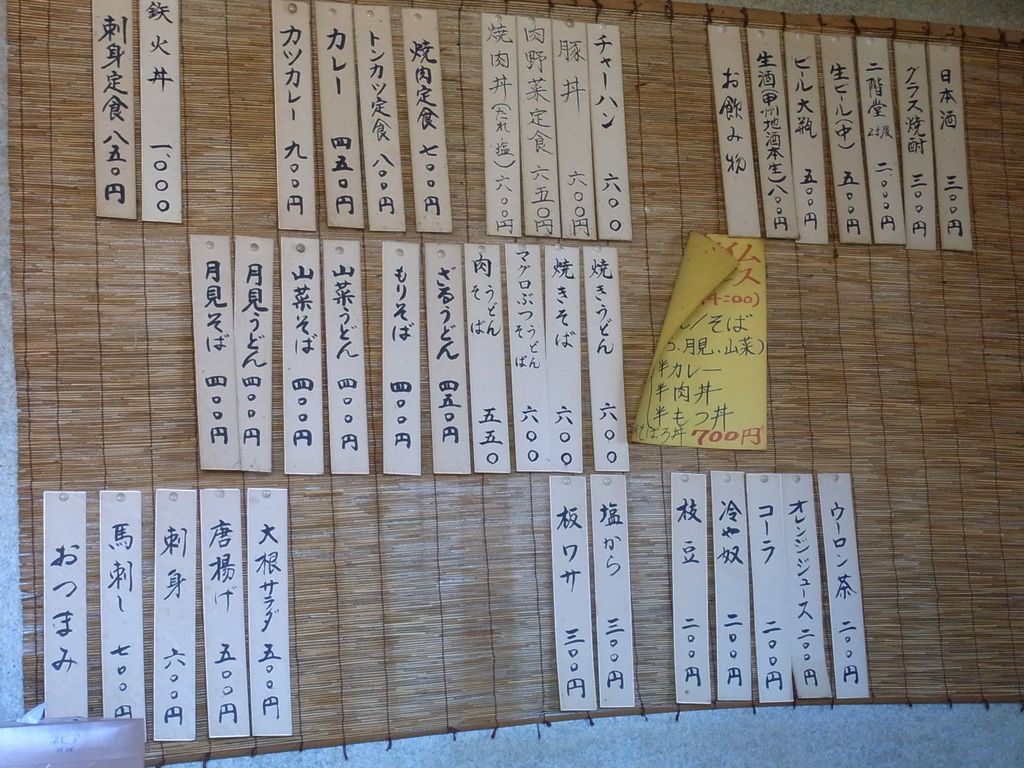 日本酒 三〇〇円
グラス焼酎 三〇〇円
二階堂 25度 二、〇〇〇円
生ビール(中) 五〇〇円
ビール大瓶 五〇〇円
生酒(甲州地酒本生) 八〇〇円
お飲み物
チャーハン 六〇〇
豚丼 六〇〇円
肉野菜定食 六五〇円
焼肉丼(たれ・塩) 六〇〇円
焼肉定食 七〇〇円
トンカツ定食 八〇〇円
カレー 四五〇円
カツカレー 九〇〇円
鉄火丼 一、〇〇〇
刺身定食 八五〇円
イム
ス
4:00)
/そば
月見、山菜)
半カレー
半肉丼
半もつ丼
そぼろ丼 700円
焼きうどん 六〇〇
焼きそば 六〇〇
マグロぶつうどん そば 六〇〇
肉うどん そば 五五〇
ざるうどん 四五〇円
もりそば 四〇〇円
山菜うどん 四〇〇円
山菜そば 四〇〇円
月見うどん 四〇〇円
月見そば 四〇〇円
ウーロン茶 二〇〇円
オレンジジュース 二〇〇円
コーラ 二〇〇円
冷や奴 二〇〇円
枝豆 二〇〇円
塩から 三〇〇円
板ワサ 三〇〇円
大根サラダ 五〇〇円
唐揚げ 五〇〇円
刺身 六〇〇円
馬刺し 七〇〇円
おつまみ